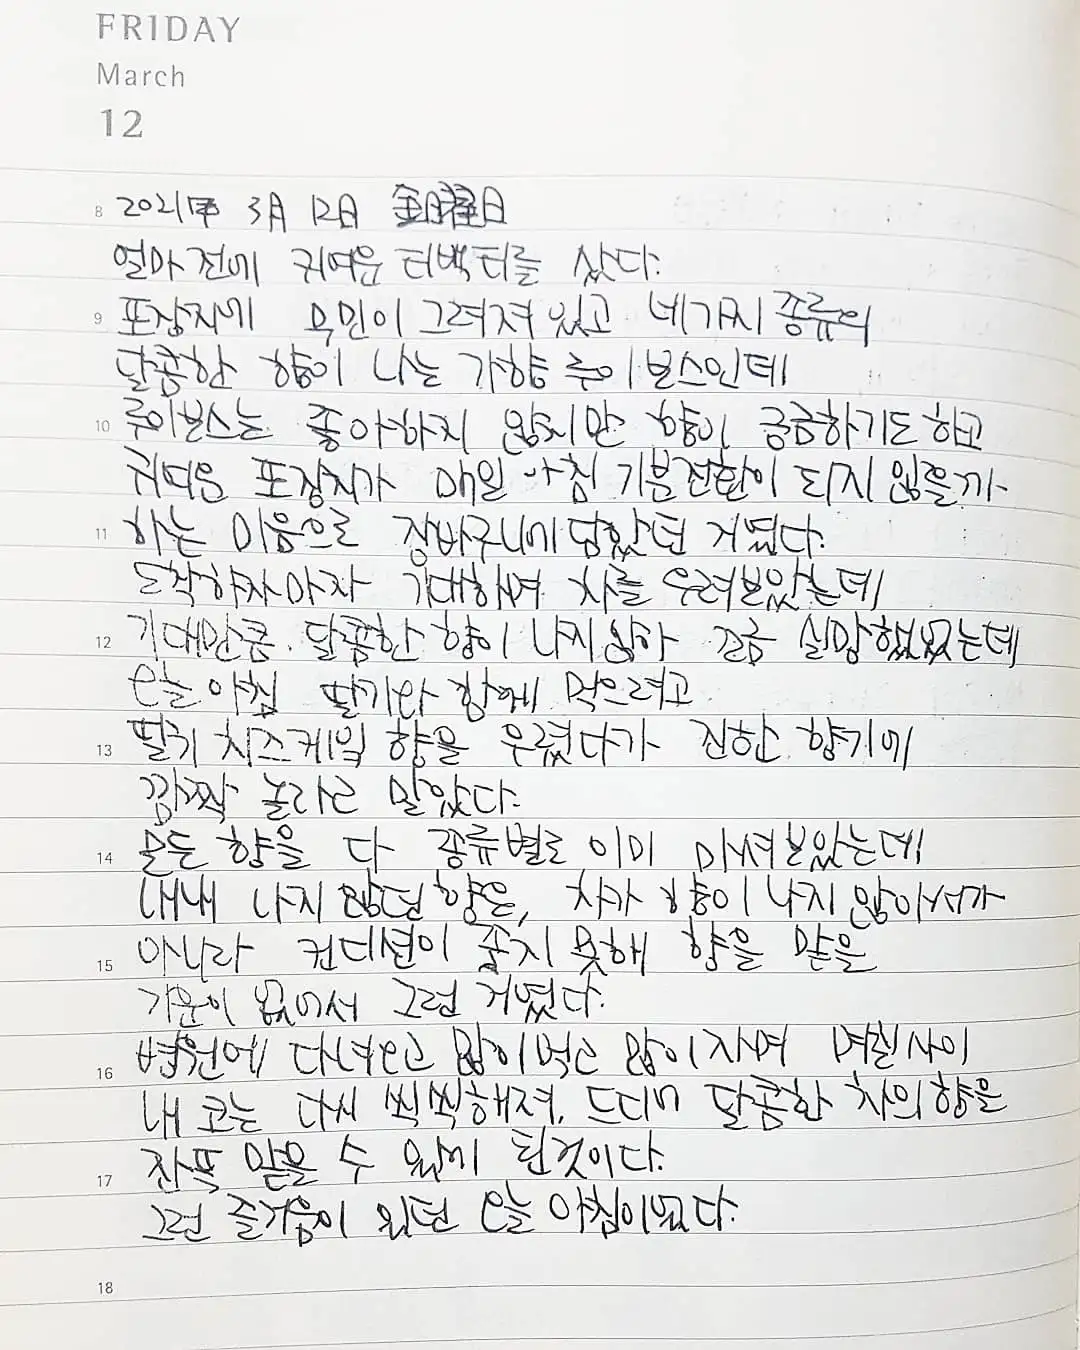 FRIDAY
March
12
8 2021年 3月 12日 金曜日
얼마전에 귀여운 티백티를 샀다.
9 포장지에 무민이 그려져있고 네가지 종류의
달콤한 향이 나는 가향 루이보스인데
10 루이보스는 좋아하지 않지만 향이 궁금하기도 하고
귀여운 포장지가 매일 아침 기분전환이 되지 않을까
11 하는 마음으로 장바구니에 담았던 거였다.
도착하자마자 기대하며 차를 우려보았는데
12 기대만큼 달콤한 향이 나지않아 조금 실망했었는데
오늘 아침 딸기와 함께 먹으려고
13 딸기 치즈케익 향을 우렸다가 진한 향기에
깜짝 놀라고 말았다.
14 모든 향을 다 종류별로 이미 마셔보았는데
내내 나지 않던 향은, 차가 향이 나지 않아서가
15 아니라 컨디션이 좋지 못해 향을 맡을
기운이 없어서 그런 거였다.
16 병원에 다녀오고 많이먹고 많이자며 며칠사이
내 코는 다시 씩씩해져, 드디어 달콤한 차의 향을
17 잔뜩 맡을 수 있게 된것이다.
그런 즐거움이 있던 오늘 아침이었다.
18